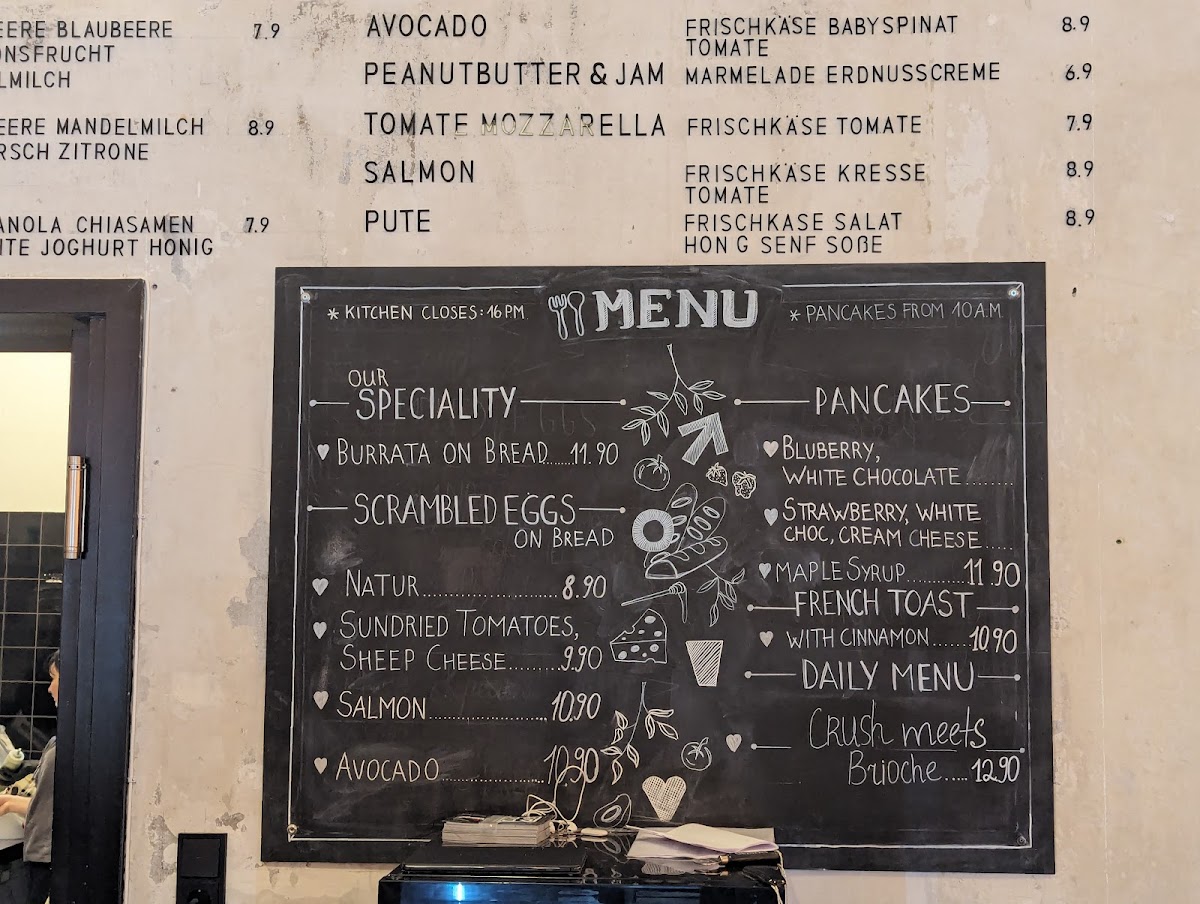 EERE BLAUBEERE 7.9
ONSFRUCHT
LMILCH
EERE MANDELMILCH 8.9
RSCH ZITRONE
ANOLA CHIASAMEN 7.9
JOGHURT HONIG
AVOCADO FRISCHKÄSE BABYSPINAT 8.9
TOMATE
PEANUTBUTTER & JAM MARMELADE ERDNUSSCREME 6.9
TOMATE MOZZARELLA FRISCHKÄSE TOMATE 7.9
SALMON FRISCHKÄSE KRESSE 8.9
TOMATE
PUTE FRISCHKASE SALAT 8.9
HON G SENF SOßE
* KITCHEN CLOSES: 16 PM.
MENU
* PANCAKES FROM 10 A.M.
OUR
SPECIALITY
BURRATA ON BREAD.......11.90
SCRAMBLED EGGS
ON BREAD
NATUR....................8.90
SUNDRIED TOMATOES,
SHEEP CHEESE.........9.90
SALMON.................10.90
AVOCADO...............10.90
PANCAKES
BLUBERRY,
WHITE CHOCOLATE........
STRAWBERRY, WHITE
CHOC, CREAM CHEESE.....
MAPLE SYRUP...........11.90
FRENCH TOAST
WITH CINNAMON.......10.90
DAILY MENU
Crush meets
Brioche.....12.90